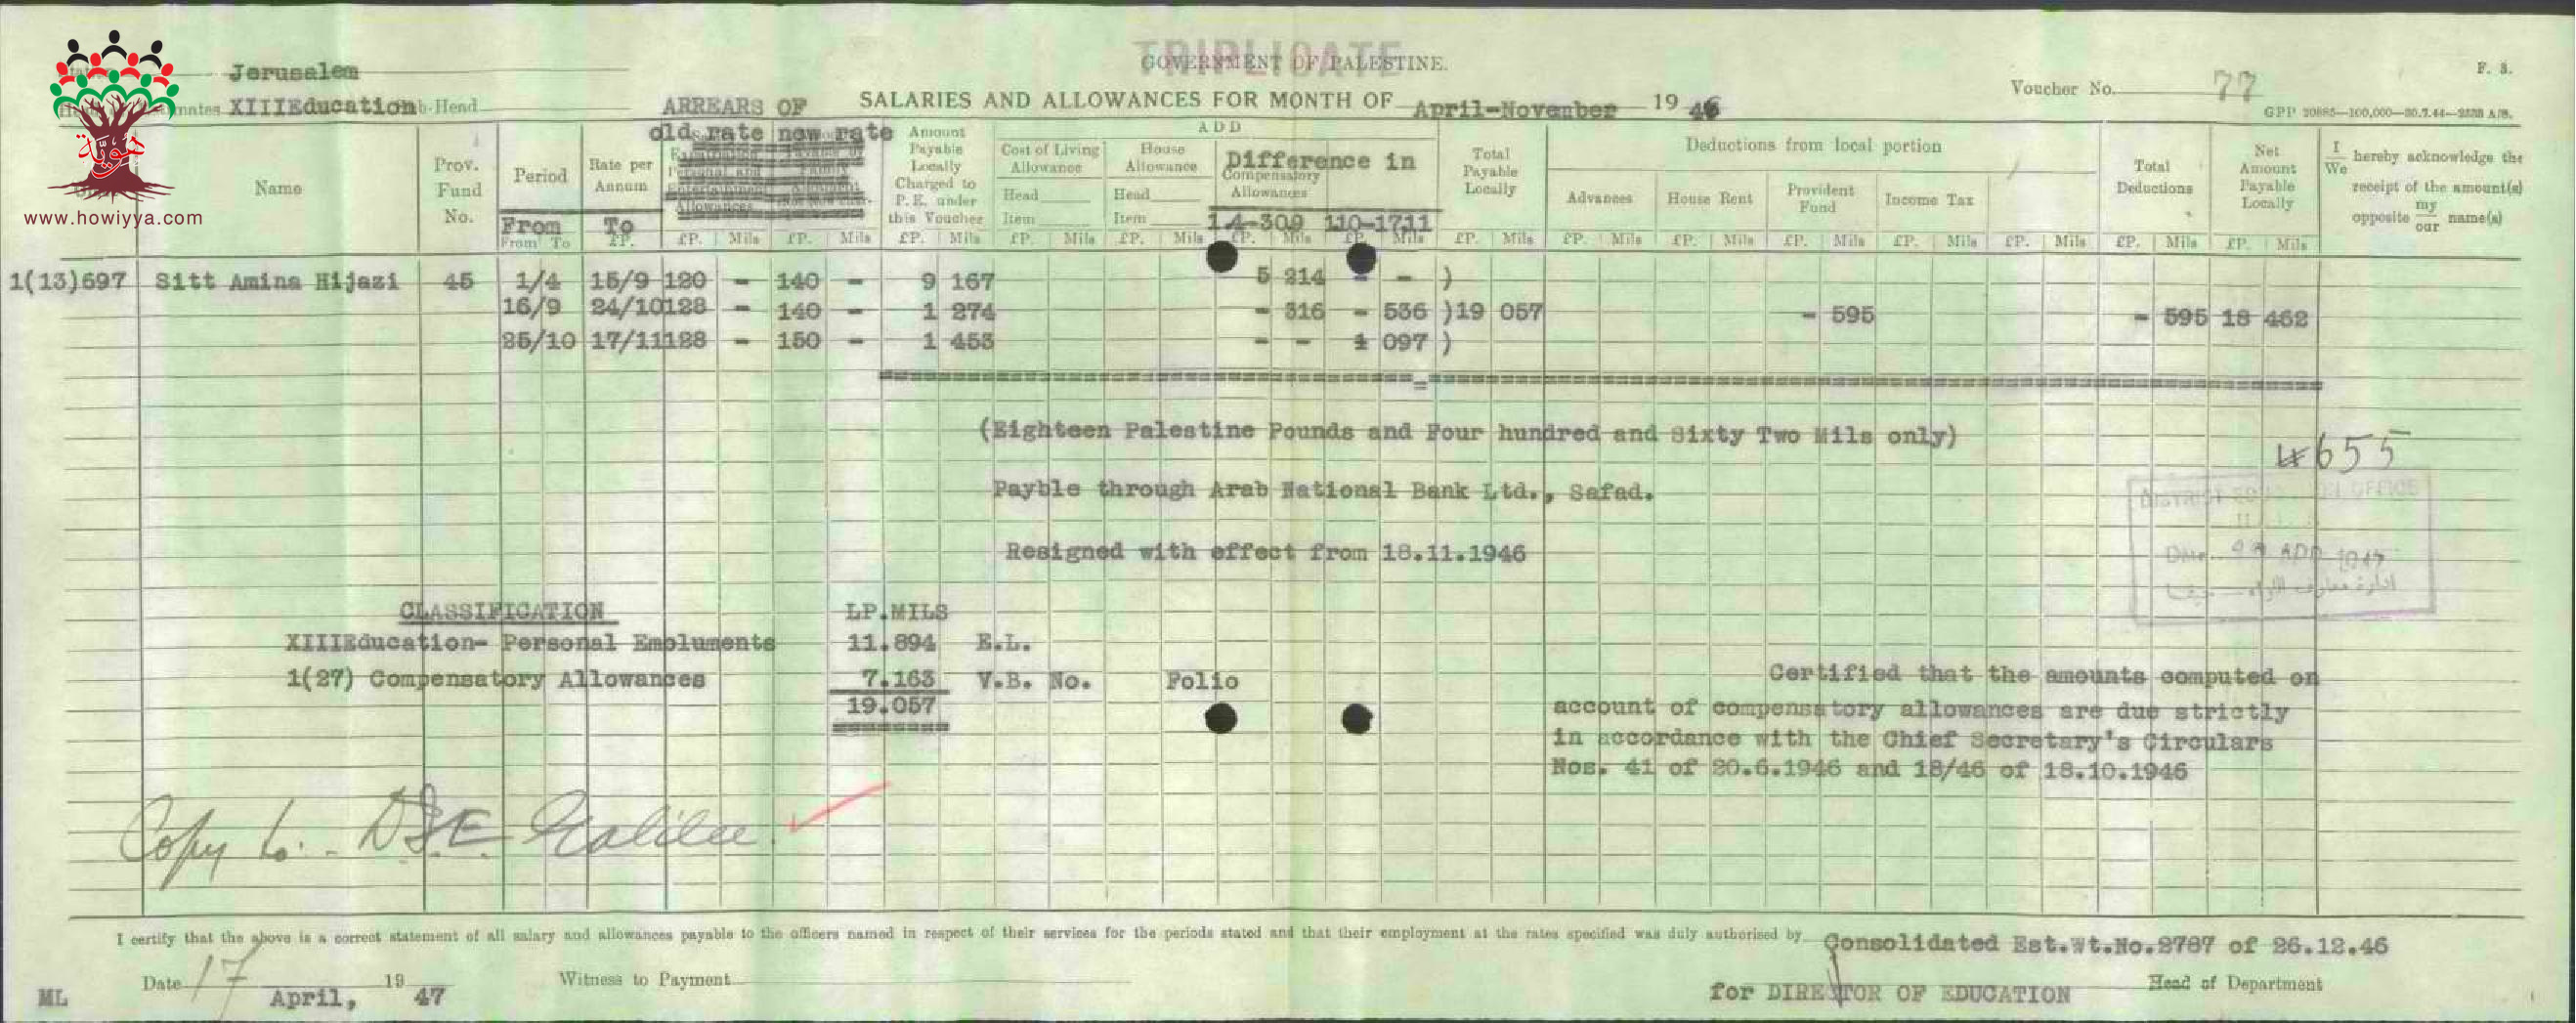 TRIPLICATE
GOVERNMENT OF PALESTINE.
F. 3.
Jerusalem
Voucher No. 77
XIIIEducation
ARREARS OF
SALARIES AND ALLOWANCES FOR MONTH OF April-November 1946
GPP 20885—100,000—20.7.44—
هوية
www.howiyya.com
Name
Prov. Fund No.
Period
From
From To
Rate per Annum
To
£P.
old rate new rate
£P. Mils £P. Mils
Amount Payable Locally Charged to P. E. under this Voucher
£P. Mils
ADD
Cost of Living Allowance
Head
Item
£P. Mils
House Allowance
Head
Item
£P. Mils
Difference in
Compensatory Allowances
1.4-30.9 1.10-17.11
£P. Mils £P. Mils
Total Payable Locally
£P. Mils
Deductions from local portion
Advances
£P. Mils
House Rent
£P. Mils
Provident Fund
£P. Mils
Income Tax
£P. Mils
£P. Mils
Total Deductions
£P. Mils
Net Amount Payable Locally
£P. Mils
I We hereby acknowledge the receipt of the amount(s) opposite my our name(s)
1(13)697 Sitt Amina Hijazi 45 1/4 15/9 120 - 140 - 9 167 5 214 - - )
16/9 24/10 128 - 140 - 1 274 - 316 - 536 ) 19 057 - 595 - 595 18 462
25/10 17/11 128 - 150 - 1 453 - - 1 097 )
(Eighteen Palestine Pounds and Four hundred and Sixty Two Mils only)
655
Payble through Arab National Bank Ltd., Safad.
DISTRICT EDUCATION OFFICE
Resigned with effect from 18.11.1946
Date 1947
CLASSIFICATION LP.MILS
XIIIEducation- Personal Emoluments 11.894 E.L.
1(27) Compensatory Allowances 7.163 V.B. No. Folio
19.057
Certified that the amounts computed on
account of compensatory allowances are due strictly
in accordance with the Chief Secretary's Circulars
Nos. 41 of 20.6.1946 and 18/46 of 18.10.1946
Copy to:- D.I.E. Galilee
I certify that the above is a correct statement of all salary and allowances payable to the officers named in respect of their services for the periods stated and that their employment at the rates specified was duly authorised by Consolidated Est.Wt.No.2787 of 26.12.46
Date 17 April, 1947
Witness to Payment
for DIRECTOR OF EDUCATION
Head of Department
ML